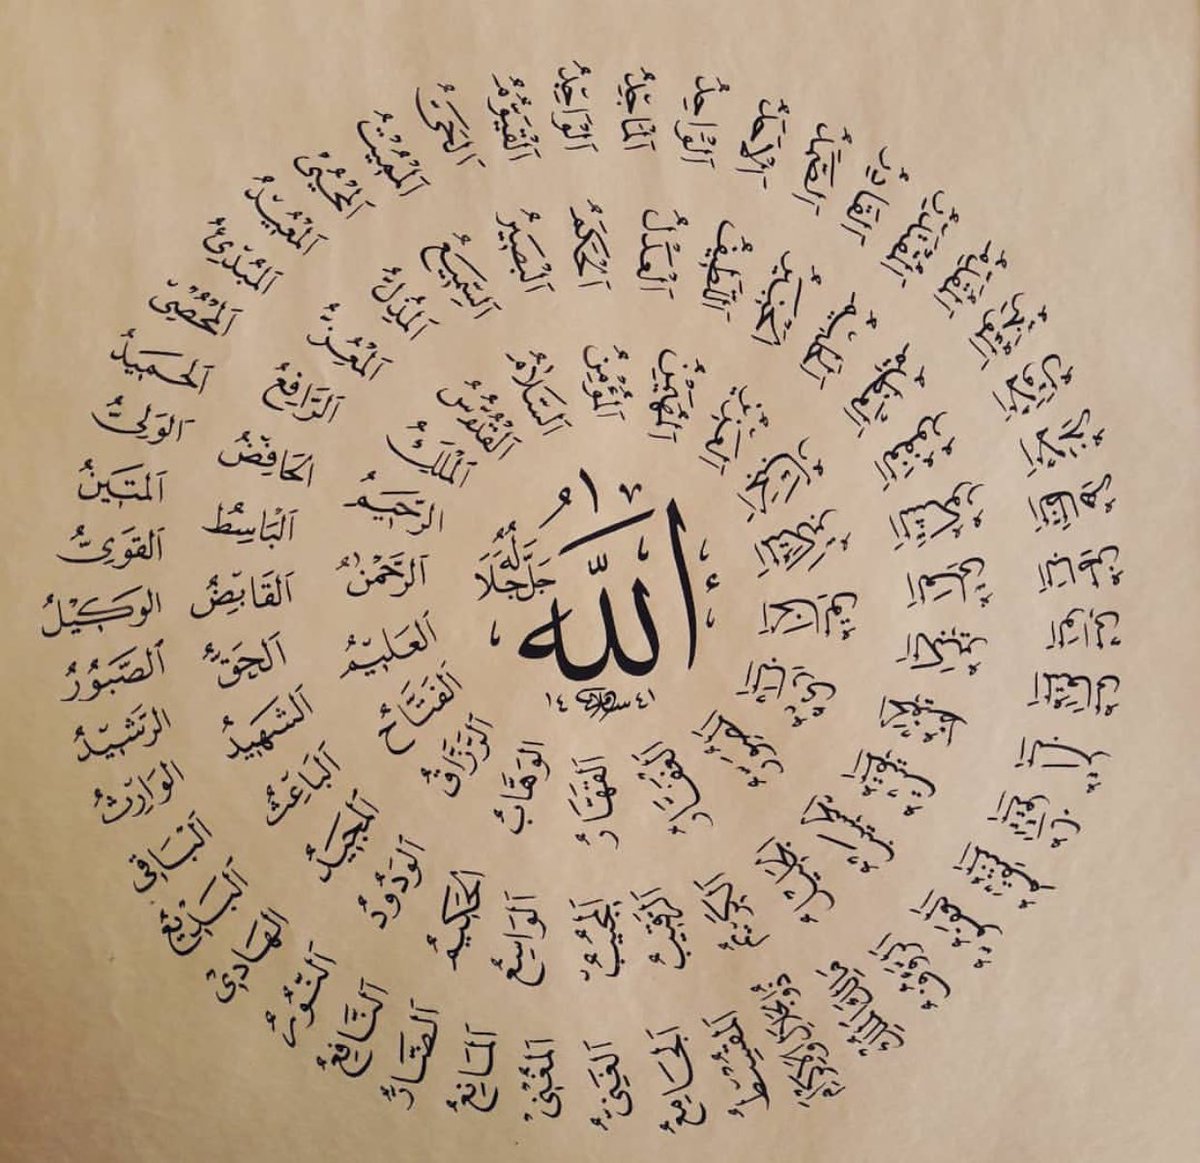 اَللّٰهُ
جَلَّ جَلَالُهُ
اَلرَّحْمٰنُ
اَلرَّحِيمُ
اَلْمَلِكُ
اَلْقُدُّوسُ
اَلسَّلَامُ
اَلْمُؤْمِنُ
اَلْمُهَيْمِنُ
اَلْعَزِيزُ
اَلْجَبَّارُ
اَلْمُتَكَبِّرُ
اَلْخَالِقُ
اَلْبَارِئُ
اَلْمُصَوِّرُ
اَلْغَفَّارُ
اَلْقَهَّارُ
اَلْوَهَّابُ
اَلرَّزَّاقُ
اَلْفَتَّاحُ
اَلْعَلِيمُ
اَلْقَابِضُ
اَلْبَاسِطُ
اَلْخَافِضُ
اَلرَّافِعُ
اَلْمُعِزُّ
اَلْمُذِلُّ
اَلسَّمِيعُ
اَلْبَصِيرُ
اَلْحَكَمُ
اَلْعَدْلُ
اَللَّطِيفُ
اَلْخَبِيرُ
اَلْحَلِيمُ
اَلْعَظِيمُ
اَلْغَفُورُ
اَلشَّكُورُ
اَلْعَلِيُّ
اَلْكَبِيرُ
اَلْحَفِيظُ
اَلْمُقِيتُ
اَلْحَسِيبُ
اَلْجَلِيلُ
اَلْكَرِيمُ
اَلرَّقِيبُ
اَلْمُجِيبُ
اَلْوَاسِعُ
اَلْحَكِيمُ
اَلْوَدُودُ
اَلْمَجِيدُ
اَلْبَاعِثُ
اَلشَّهِيدُ
اَلْحَقُّ
اَلْوَكِيلُ
اَلْقَوِيُّ
اَلْمَتِينُ
اَلْوَلِيُّ
اَلْحَمِيدُ
اَلْمُحْصِي
اَلْمُبْدِئُ
اَلْمُعِيدُ
اَلْمُحْيِي
اَلْمُمِيتُ
اَلْحَيُّ
اَلْقَيُّومُ
اَلْوَاجِدُ
اَلْمَاجِدُ
اَلْوَاحِدُ
اَلْأَحَدُ
اَلصَّمَدُ
اَلْقَادِرُ
اَلْمُقْتَدِرُ
اَلْمُقَدِّمُ
اَلْمُؤَخِّرُ
اَلْأَوَّلُ
اَلْآخِرُ
اَلظَّاهِرُ
اَلْبَاطِنُ
اَلْوَالِي
اَلْمُتَعَالِي
اَلْبَرُّ
اَلتَّوَّابُ
اَلْمُنْتَقِمُ
اَلْعَفُوُّ
اَلرَّؤُوفُ
مَالِكُ الْمُلْكِ
ذُو الْجَلَالِ وَالْإِكْرَامِ
اَلْمُقْسِطُ
اَلْجَامِعُ
اَلْغَنِيُّ
اَلْمُغْنِي
اَلْمَانِعُ
اَلضَّارُّ
اَلنَّافِعُ
اَلنُّورُ
اَلْهَادِي
اَلْبَدِيعُ
اَلْبَاقِي
اَلْوَارِثُ
اَلرَّشِيدُ
اَلصَّبُورُ